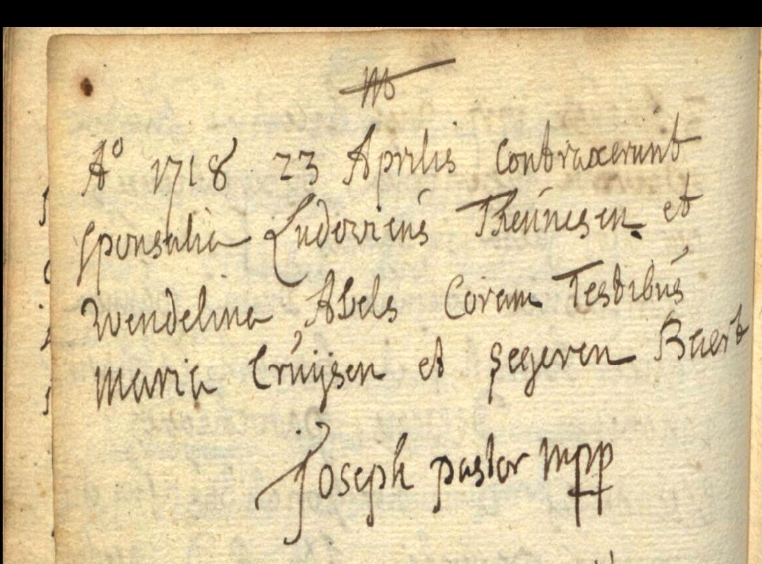 A° 1718 23 Aprilis Contraxerunt
sponsalia Ludovicus Theunesen et
Wendelina Abels Coram Testibus
Maria Cruijsen et Segeren Baert
Joseph pastor mpp